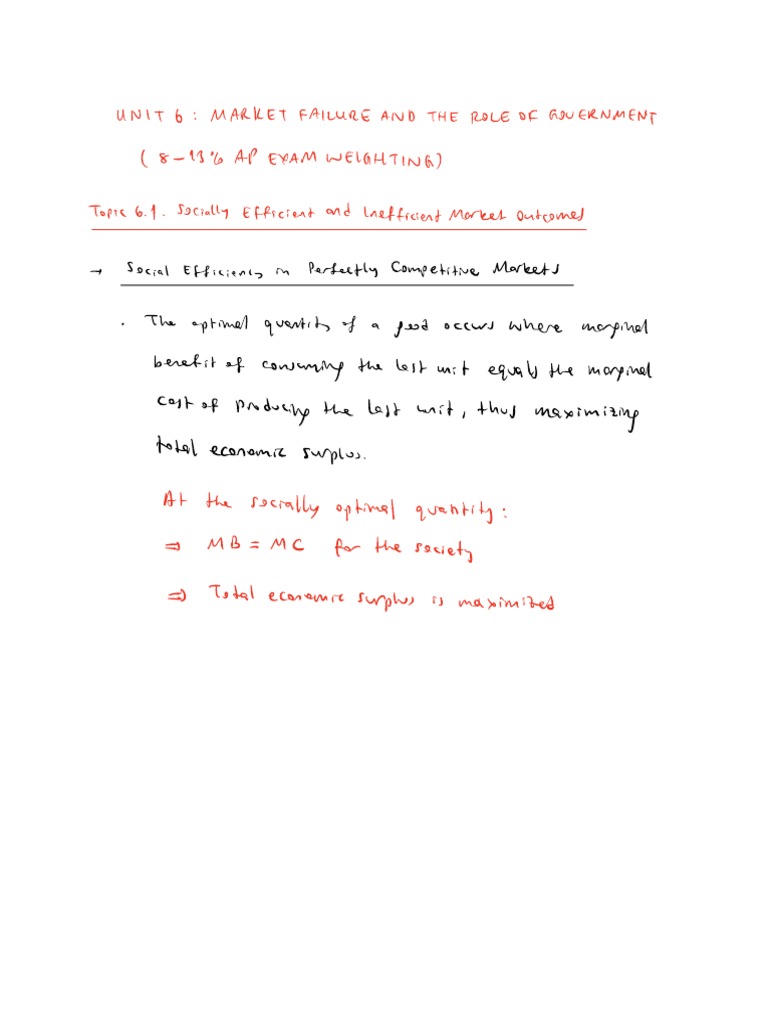 UNIT 6 : MARKET FAILURE AND THE ROLE OF GOVERNMENT
( 8-13% AP EXAM WEIGHTING)
Topic 6.1. Socially Efficient and Inefficient Market Outcomes
→ Social Efficiency in Perfectly Competitive Markets
. The optimal quantity of a good occurs where marginal
benefit of consuming the last unit equals the marginal
cost of producing the last unit, thus maximizing
total economic surplus.
At the socially optimal quantity:
⇒ MB = MC for the society
⇒ Total economic surplus is maximized